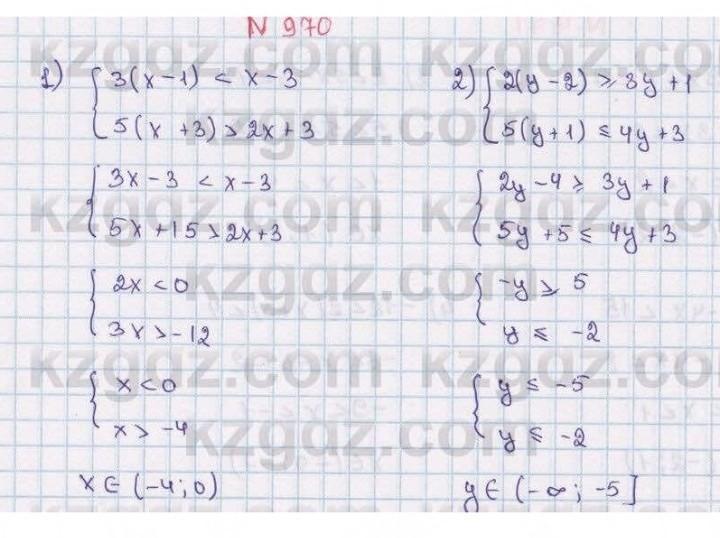 N 970
1) { 3(x-1) < x-3
5(x+3) > 2x+3
{ 3x-3 < x-3
5x+15 > 2x+3
{ 2x < 0
3x > -12
{ x < 0
x > -4
x ∈ (-4; 0)
2) { 2(y-2) ⩾ 3y+1
5(y+1) ⩽ 4y+3
{ 2y-4 ⩾ 3y+1
5y+5 ⩽ 4y+3
{ -y ⩾ 5
y ⩽ -2
{ y ⩽ -5
y ⩽ -2
y ∈ (-∞; -5]
kzgdz.com kzgdz.com
kzgdz.com
kzgdz.com kzgdz.com
kzgdz.com
kzgdz.com kzgdz.com
kzgdz.com